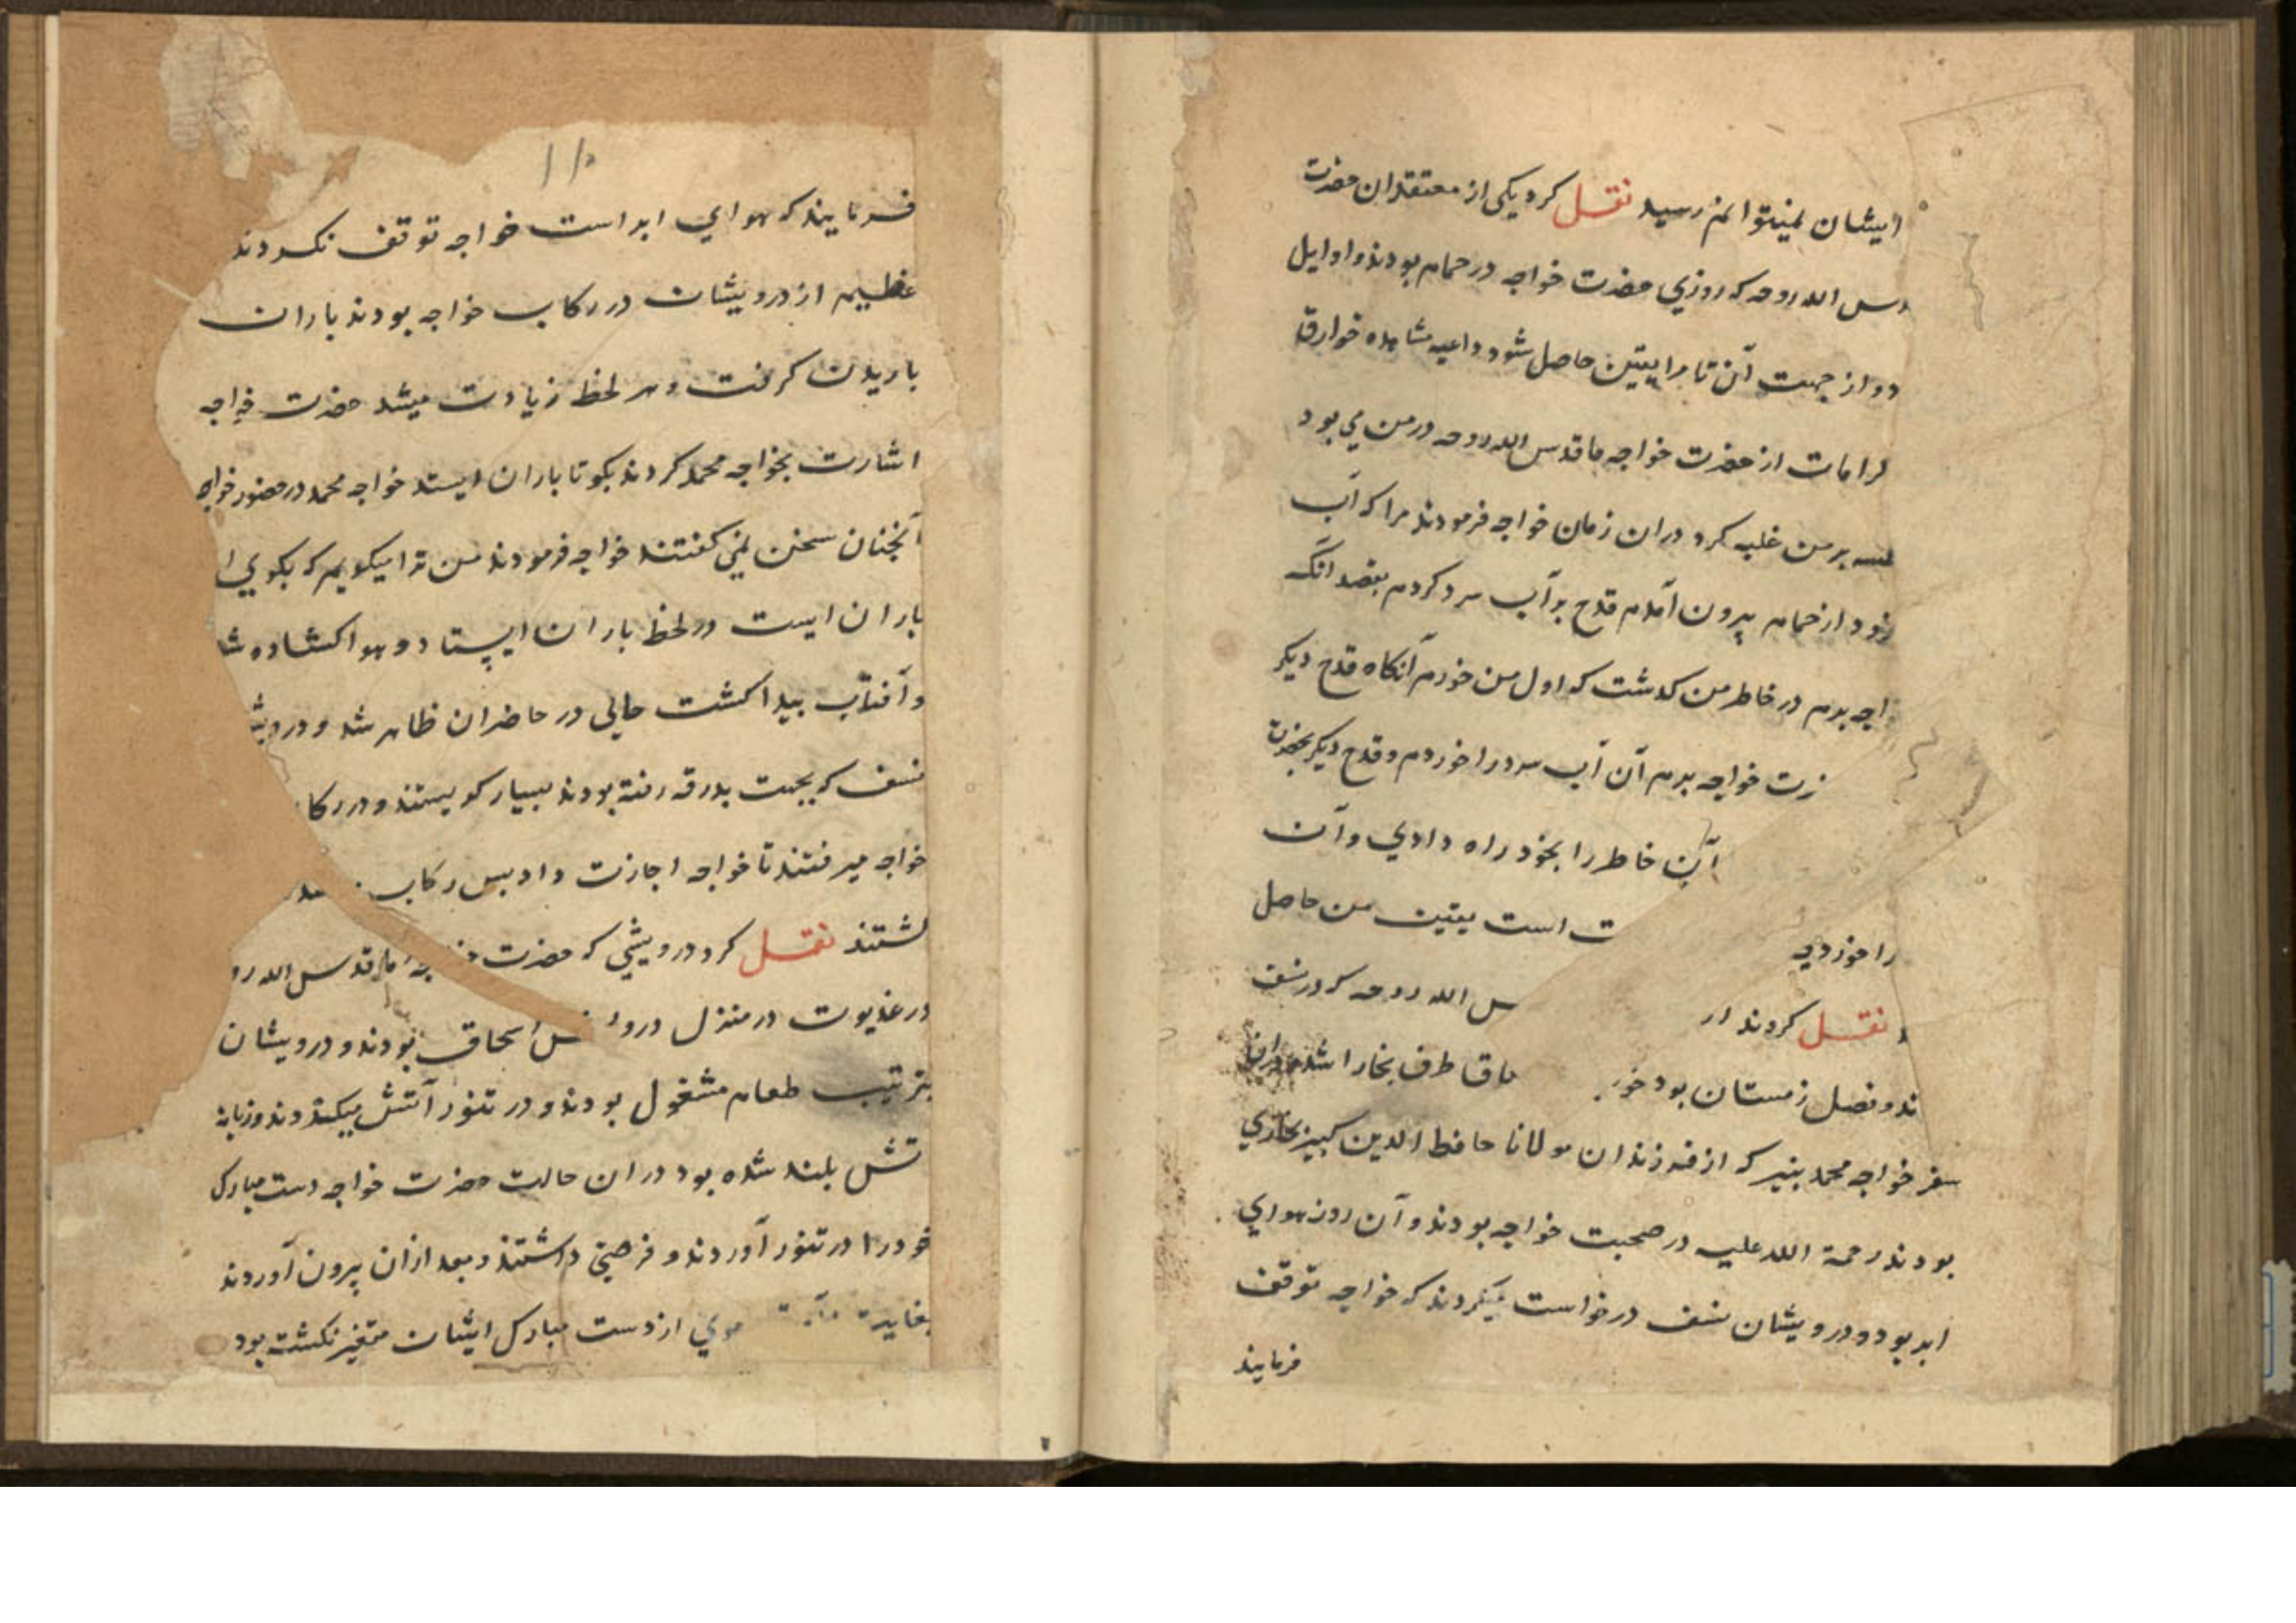 ایشان نمیتوانم رسید نقل کرد یکی از معتقدان حضرت
س الله روحه که روزی حضرت خواجه در حمام بودند و اوایل
د و از جهت آن تا مرا یقین حاصل شود داعیه مشاهده خوارق
کرامات از حضرت خواجه ما قدس الله روحه در من می بود
بر من غلبه کرد در ان زمان خواجه فرمودند مرا که آب
از حمام بیرون آمدم قدح بر آب سرد کردم بقصد آنکه
اجه برم در خاطر من گذشت که اول من خورم آنکاه قدح دیکر
رت خواجه برم آن آب سرد را خوردم و قدح دیکر بحضرت
آن خاطر را بخود راه دادی و آن
را خوردی
ت است یقین من حاصل
نقل کردند
س الله روحه که در نسف
ند و فصل زمستان بود
طرف بخارا شد در ان
سفر خواجه محمد که از فرزندان مولانا حافظ الدین کبیر بخاری
بودند رحمة الله علیه در صحبت خواجه بودند و آن روز هوای
ابر بود و درویشان نسف درخواست میکردند که خواجه توقف
فرمایند
فرمایند که هوای ابر است خواجه توقف نکردند
عظیم از درویشان در رکاب خواجه بودند باران
باریدن کرفت و هر لحظ زیادت میشد حضرت خواجه
اشارت بخواجه محمد کردند بکو تا باران ایستد خواجه محمد در حضور خواجه
آنچنان سخن نمی کفتند خواجه فرمودند من ترا میکویم که بکوی ا
باران ایست در لحظ باران ایستاد و هوا کشاده شد
و آفتاب پیدا کشت حالی در حاضران ظاهر شد و درویش
نسف که بجهت بدرقه رفته بودند بسیار کریستند و در رکا
خواجه میرفتند تا خواجه اجازت داد بس رکاب
کشتند نقل کرد درویشی که حضرت خواجه ما قدس الله رو
در غدیوت در منزل اسحاق بودند و درویشان
بترتیب طعام مشغول بودند و در تنور آتش میکردند و زبانه
تش بلند شده بود در ان حالت حضرت خواجه دست مبارک
خود را در تنور آوردند و فرصتی داشتند و بعد ازان بیرون آوردند
موی از دست مبارک ایشان متغیر نکشته بود